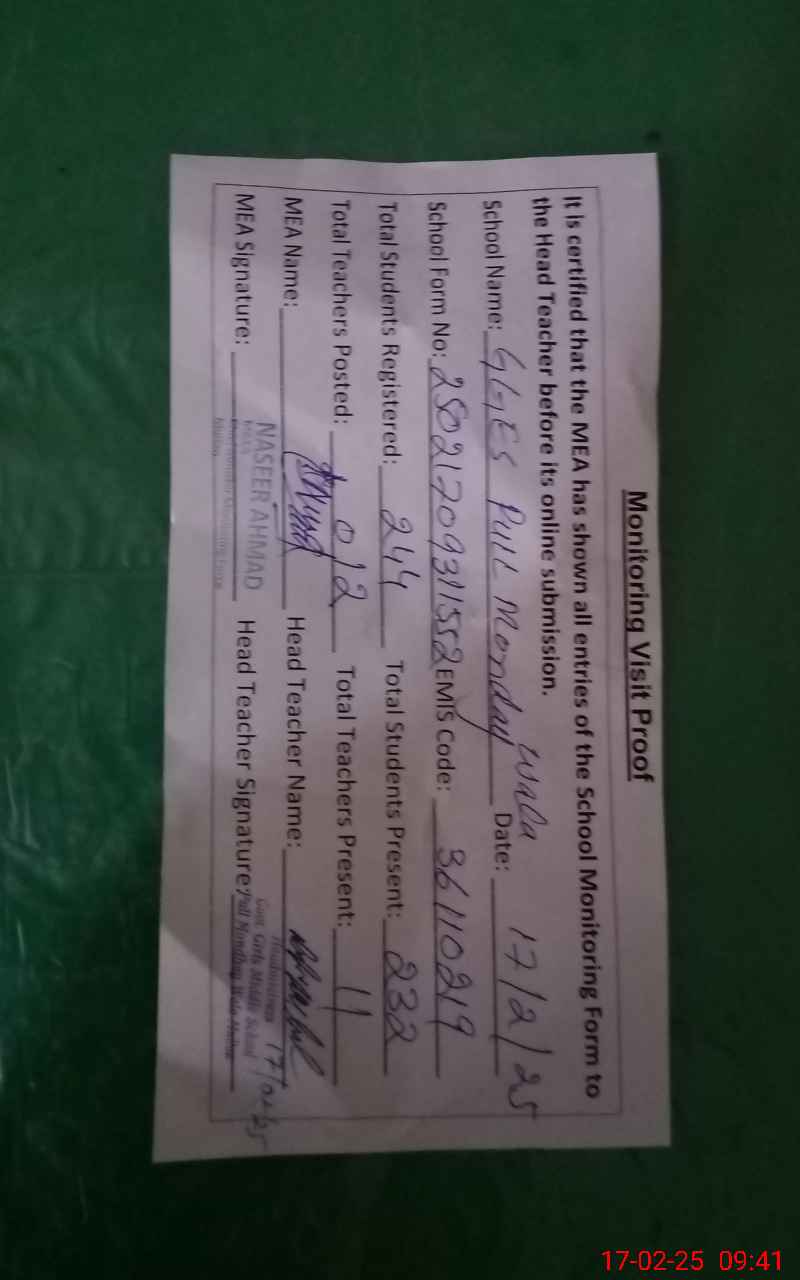 Monitoring Visit Proof
It is certified that the MEA has shown all entries of the School Monitoring Form to
the Head Teacher before its online submission.
School Name: GGES Pull Monday wala Date: 17/2/25
School Form No: 25021709311552 EMIS Code: 36110219
Total Students Registered: 244 Total Students Present: 232
Total Teachers Posted: 012 Total Teachers Present: 11
MEA Name: Head Teacher Name:
MEA Signature: NASEER AHMAD Head Teacher Signature:
Govt. Girls Middle School 17/02/25
Pull Mondhay Wala Multan
17-02-25 09:41